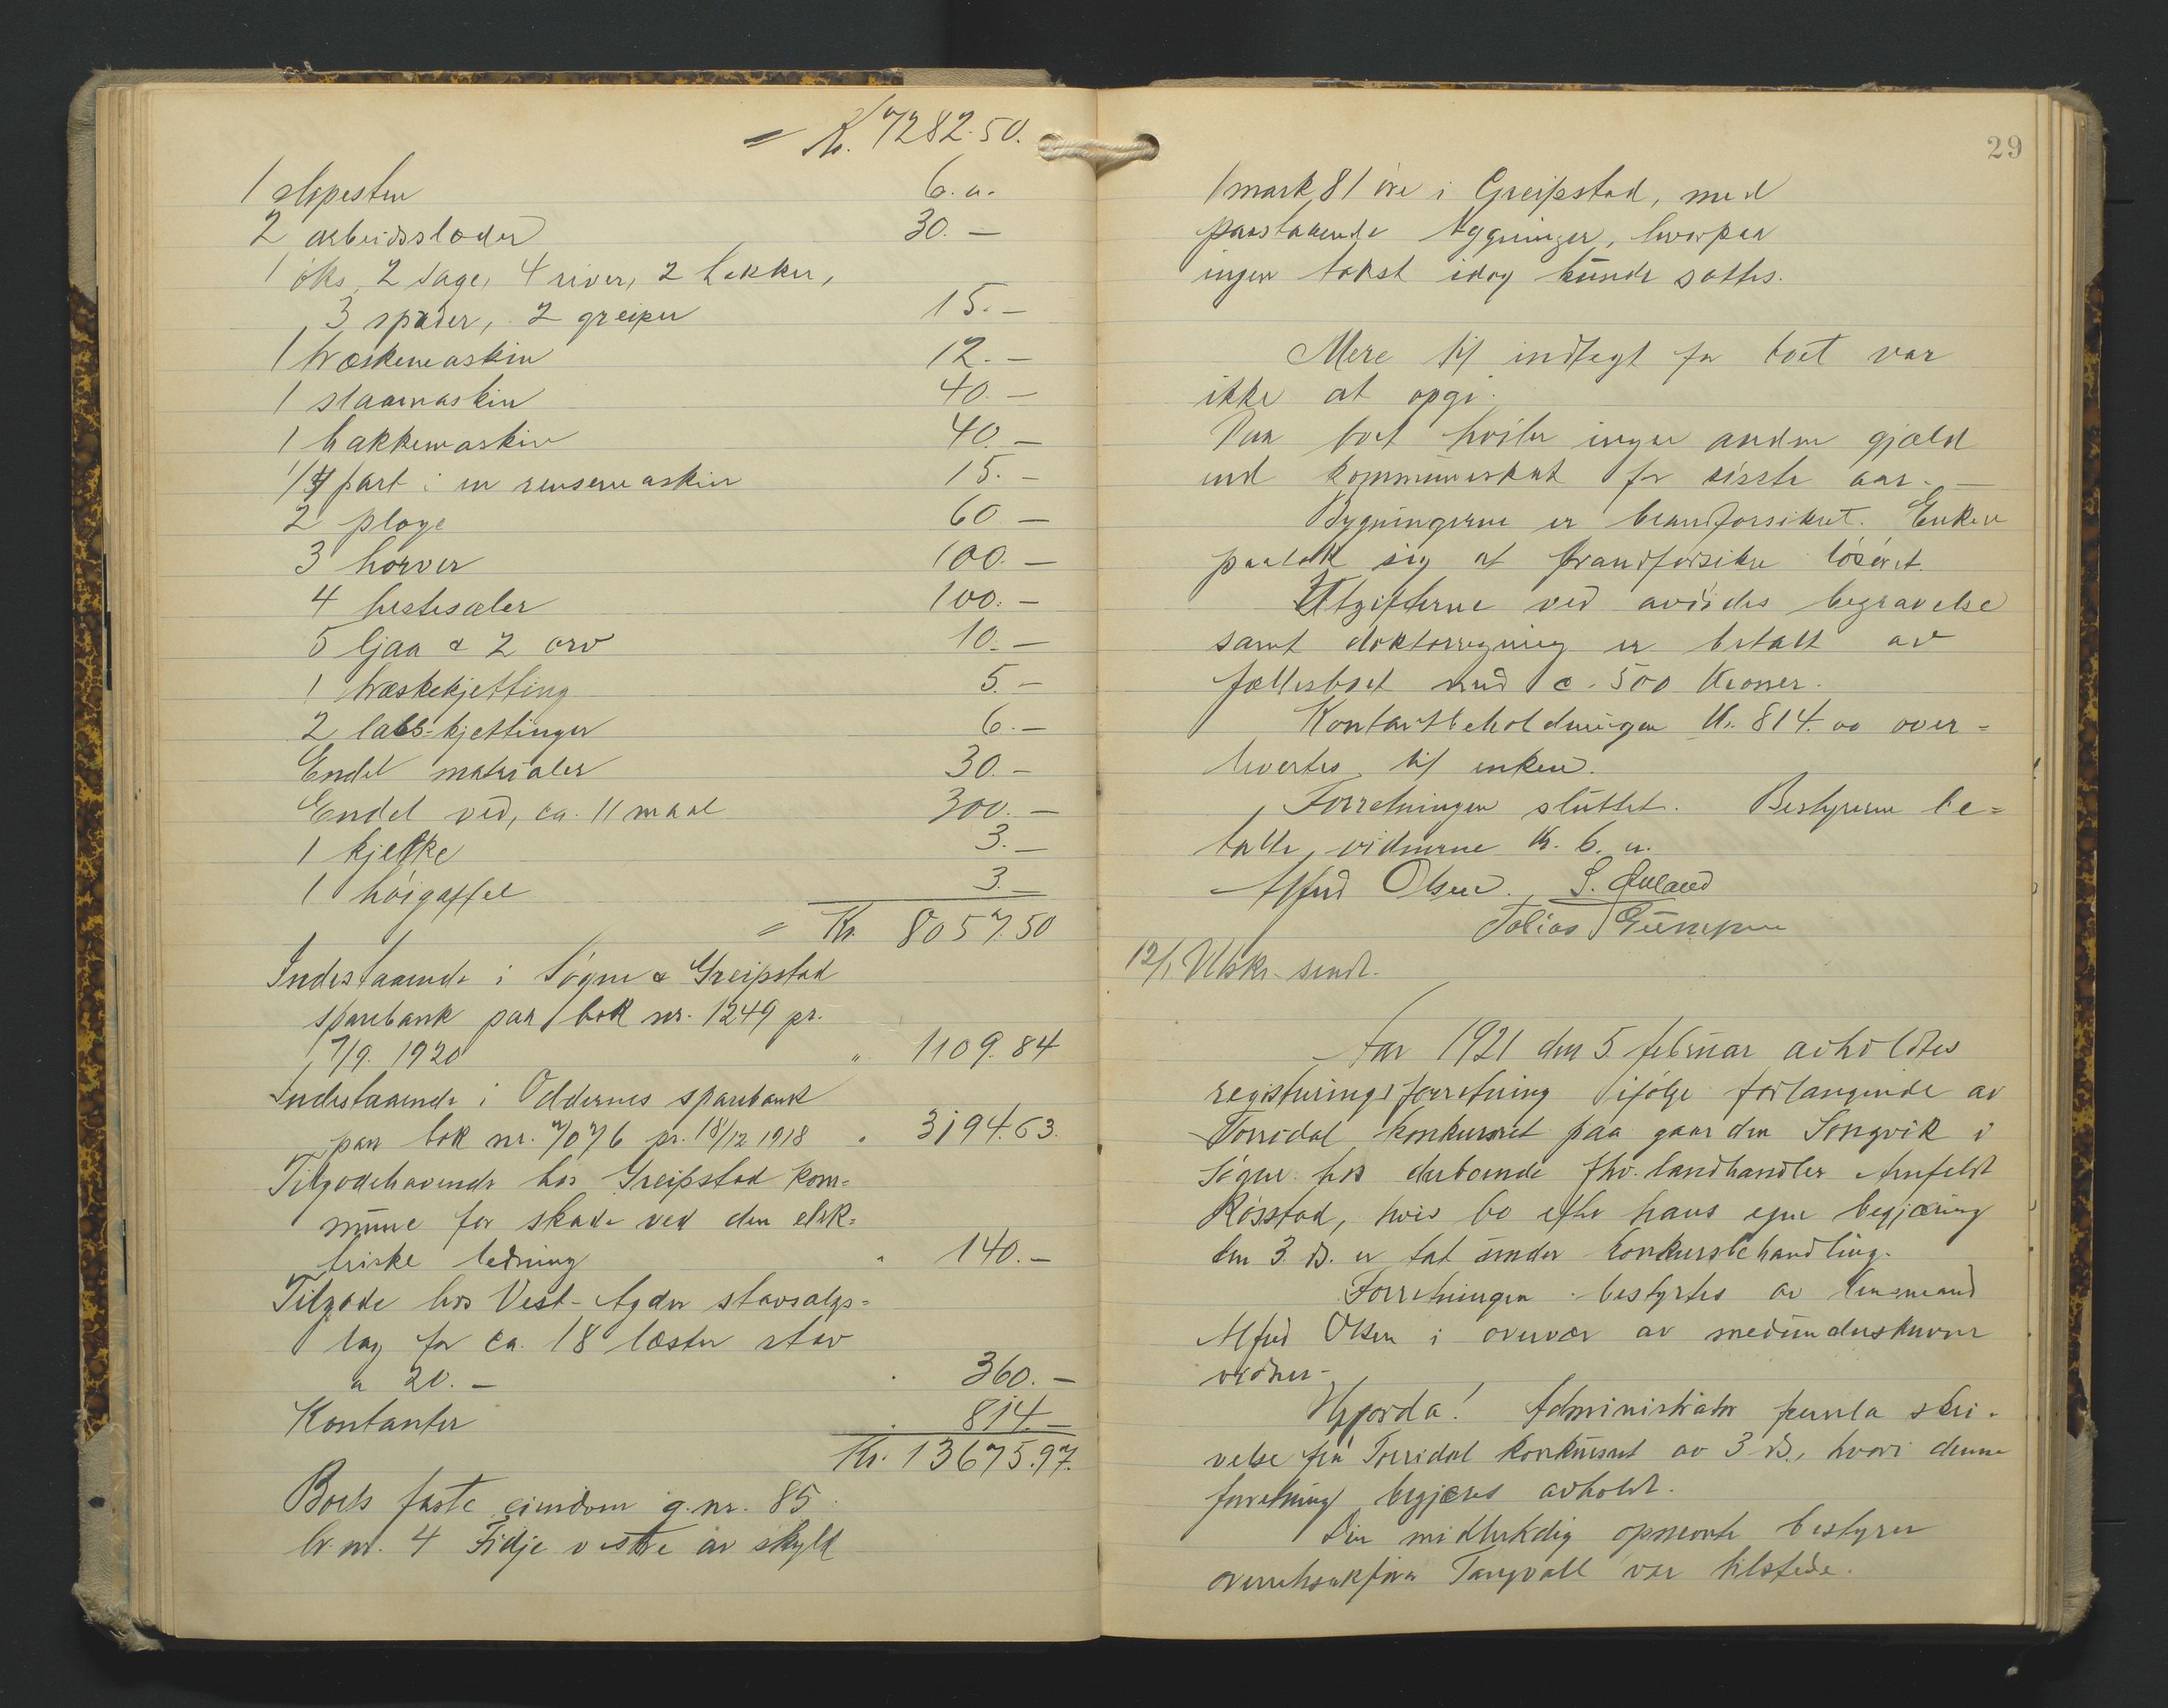 = Kr. 7282.50.
1 slipesten 6.00
2 arbeidsslæder 30.—
1 øks, 2 sage, 4 river, 2 hakker,
3 spader, 2 greiper 15.—
1 træskemaskin 12.—
1 slaamaskin 40.—
1 hakkemaskin 40.—
1/4 part i en rensemaskin 15.—
2 ploge 60 —
3 horver 100.—
4 hestesæler 100.—
5 ljaa & 2 orv 10.—
1 træskekjetting 5.—
2 lass-kjettinger 6.—
Endel materialer 30.—
Endel ved, ca. 11 maal 300.—
1 kjelke 3.—
1 høigaffel 3.—
= Kr. 8057.50
Indestaaende i Søgne & Greipstad
sparebank paa bok nr. 1249 pr.
17/9. 1920 " 1109.84
Indestaaende i Oddernes sparebank
paa bok nr. 7076 pr. 18/12 1918 " 3194.63.
Tilgodehavende hos Greipstad kom=
mune for skade ved den elek=
triske ledning " 140.—
Tilgode hos Vest-Agder stavsalgs=
lag for ca. 18 læster stav
a 20.— " 360.—
Kontanter " 814.—
Kr. 13675.97.
Boets faste eiendom g.nr. 85
br.nr. 4 Fidje vestre av skyld
29
1 mark 81 øre i Greipstad, med
paastaaende bygninger, hvorpaa
ingen takst idag kunde sættes.
Mere til indtægt for boet var
ikke at opgi.
Paa boet hviler ingen anden gjæld
end kommuneskat for sisste aar.—
Bygningerne er brandforsikret. Enken
paatok sig at brandforsikre løsøret.
Utgifterne ved avdødes begravelse
samt doktorregning er betalt av
fællesboet med c. 500 Kroner.
Kontantbeholdningen Kr. 814.00 over=
levertes til enken.
Forretningen sluttet. Bestyreren be=
talte vidnerne Kr. 6.00
Alfred Olsen. S. Auland
Tobias
12/1 Utskr. sendt.
Aar 1921 den 5. februar avholdtes
registreringsforretning ifølge forlangende av
Torridal konkursret paa gaarden Songvik i
Søgne hos derboende fhv. landhandler Arnfeldt
Røsstad, hvis bo efter hans egen begjæring
den 3. ds. er tat under konkursbehandling.
Forretningen bestyrtes av lensmand
Alfred Olsen i overvær av medunderskrevne
vidner.
Hvorda! Administrator fremla skri=
velse fra Torridal konkursret av 3 ds., hvori denne
forretning begjæres avholdt.
Den midlertidig opnevnte bestyrer
overretssakfører Tangvall var tilstede.